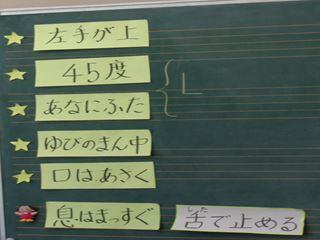 左手が上
45度
あなにふた
ゆびのまん中
口はあさく
息はまっすぐ
した
舌で止める